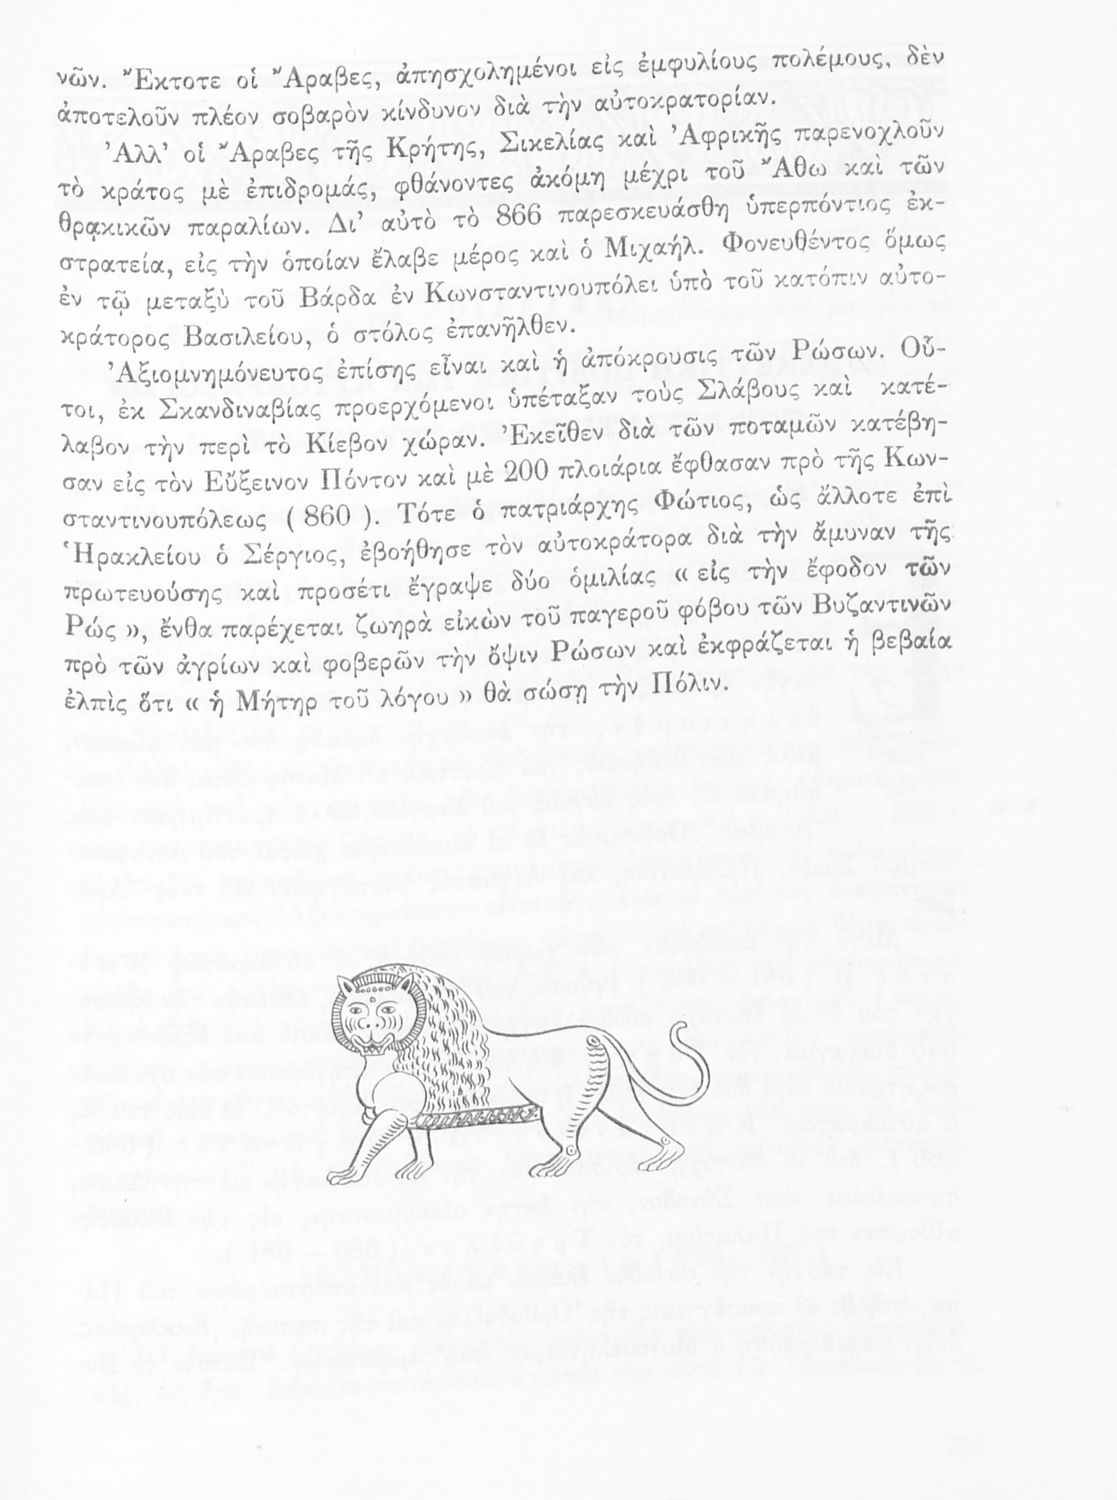 νῶν. Ἔκτοτε οἱ Ἄραβες, ἀπησχολημένοι εἰς ἐμφυλίους πολέμους, δὲν
ἀποτελοῦν πλέον σοβαρὸν κίνδυνον διὰ τὴν αὐτοκρατορίαν.
Ἀλλ' οἱ Ἄραβες τῆς Κρήτης, Σικελίας καὶ Ἀφρικῆς παρενοχλοῦν
τὸ κράτος μὲ ἐπιδρομάς, φθάνοντες ἀκόμη μέχρι τοῦ Ἄθω καὶ τῶν
θρᾳκικῶν παραλίων. Δι' αὐτὸ τὸ 866 παρεσκευάσθη ὑπερπόντιος ἐκ-
στρατεία, εἰς τὴν ὁποίαν ἔλαβε μέρος καὶ ὁ Μιχαήλ. Φονευθέντος ὅμως
ἐν τῷ μεταξὺ τοῦ Βάρδα ἐν Κωνσταντινουπόλει ὑπὸ τοῦ κατόπιν αὐτο-
κράτορος Βασιλείου, ὁ στόλος ἐπανῆλθεν.
Ἀξιομνημόνευτος ἐπίσης εἶναι καὶ ἡ ἀπόκρουσις τῶν Ρώσων. Οὗ-
τοι, ἐκ Σκανδιναβίας προερχόμενοι ὑπέταξαν τοὺς Σλάβους καὶ κατέ-
λαβον τὴν περὶ τὸ Κίεβον χώραν. Ἐκεῖθεν διὰ τῶν ποταμῶν κατέβη-
σαν εἰς τὸν Εὔξεινον Πόντον καὶ μὲ 200 πλοιάρια ἔφθασαν πρὸ τῆς Κων-
σταντινουπόλεως ( 860 ). Τότε ὁ πατριάρχης Φώτιος, ὡς ἄλλοτε ἐπὶ
Ἡρακλείου ὁ Σέργιος, ἐβοήθησε τὸν αὐτοκράτορα διὰ τὴν ἄμυναν τῆς
πρωτευούσης καὶ προσέτι ἔγραψε δύο ὁμιλίας « εἰς τὴν ἔφοδον τῶν
Ρώς », ἔνθα παρέχεται ζωηρὰ εἰκὼν τοῦ παγεροῦ φόβου τῶν Βυζαντινῶν
πρὸ τῶν ἀγρίων καὶ φοβερῶν τὴν ὄψιν Ρώσων καὶ ἐκφράζεται ἡ βεβαία
ἐλπὶς ὅτι « ἡ Μήτηρ τοῦ λόγου » θὰ σώσῃ τὴν Πόλιν.